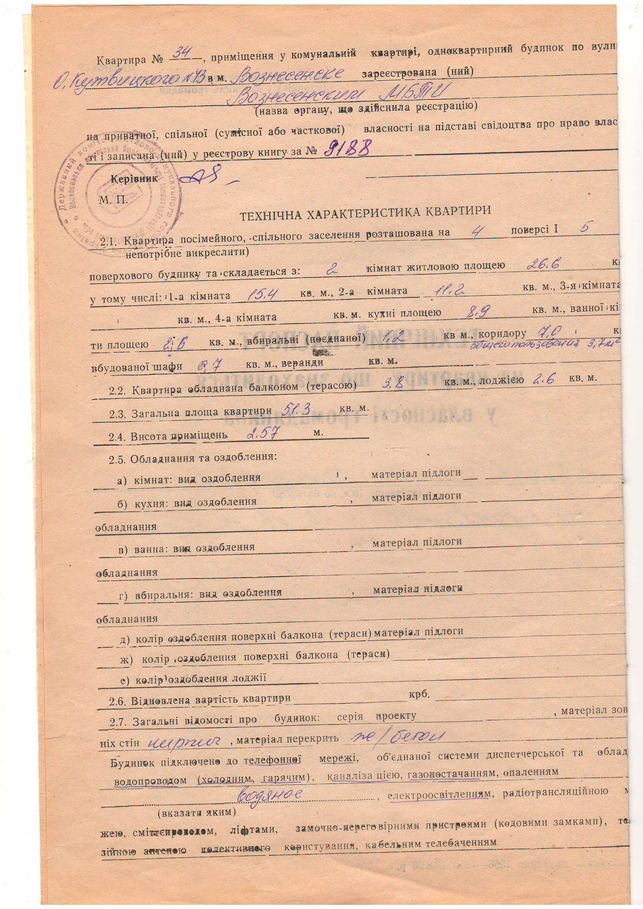 Квартира № 34, приміщення у комунальній квартирі, одноквартирний будинок по вули
О. Кутвицкого №13 в м. Вознесенске зареєстрована (ний)
Вознесенским МБТИ
(назва органу, що здійснила реєстрацію)
на приватної, спільної (сумісної або часткової) власності на підставі свідоцтва про право влас
ті і записана (ний) у реєстрову книгу за № 9188
Керівник
М. П.
ТЕХНІЧНА ХАРАКТЕРИСТИКА КВАРТИРИ
2.1. Квартира посімейного, спільного заселення розташована на 4 поверсі І 5
непотрібне викреслити)
поверхового будинку та складається з: 2 кімнат житловою площею 26.6 к
у тому числі: 1-а кімната 15.4 кв. м., 2-а кімната 11.2 кв. м., 3-я кімната
кв. м., 4-а кімната кв. м. кухні площею 8,9 кв. м., ванної кі
ти площею 2,6 кв. м., вбиральні (поєднаної) 1.2 кв. м., коридору 7,0 к
общего пользования 3,7 м²
вбудованої шафи 0,7 кв. м., веранди кв. м.
2.2. Квартира обладнана балконом (терасою) 3,8 кв. м., лоджією 2.6 кв. м.
2.3. Загальна площа квартири 51.3 кв. м.
2.4. Висота приміщень 2.57 м.
2.5. Обладнання та оздоблення:
а) кімнат: вид оздоблення , матеріал підлоги
б) кухня: вид оздоблення , матеріал підлоги
обладнання
в) ванна: вид оздоблення , матеріал підлоги
обладнання
г) вбиральня: вид оздоблення , матеріал підлоги
обладнання
д) колір оздоблення поверхні балкона (тераси) матеріал підлоги
ж) колір оздоблення поверхні балкона (тераси)
е) колір оздоблення лоджії
2.6. Відновлена вартість квартири крб.
2.7. Загальні відомості про будинок: серія проекту , матеріал зов
ніх стін кирпич, матеріал перекрить ж/бетон
Будинок підключено до телефонної мережі, об'єднаної системи диспетчерської та облад
водопроводом (холодним, гарячим), каналізацією, газопостачанням, опаленням
водяное , електроосвітленням, радіотрансляційною м
(вказати яким)
жею, сміттєпроводом, ліфтами, замочно-переговірними пристроями (кодовими замками), те
зійною антеною колективного користування, кабельним телебаченням